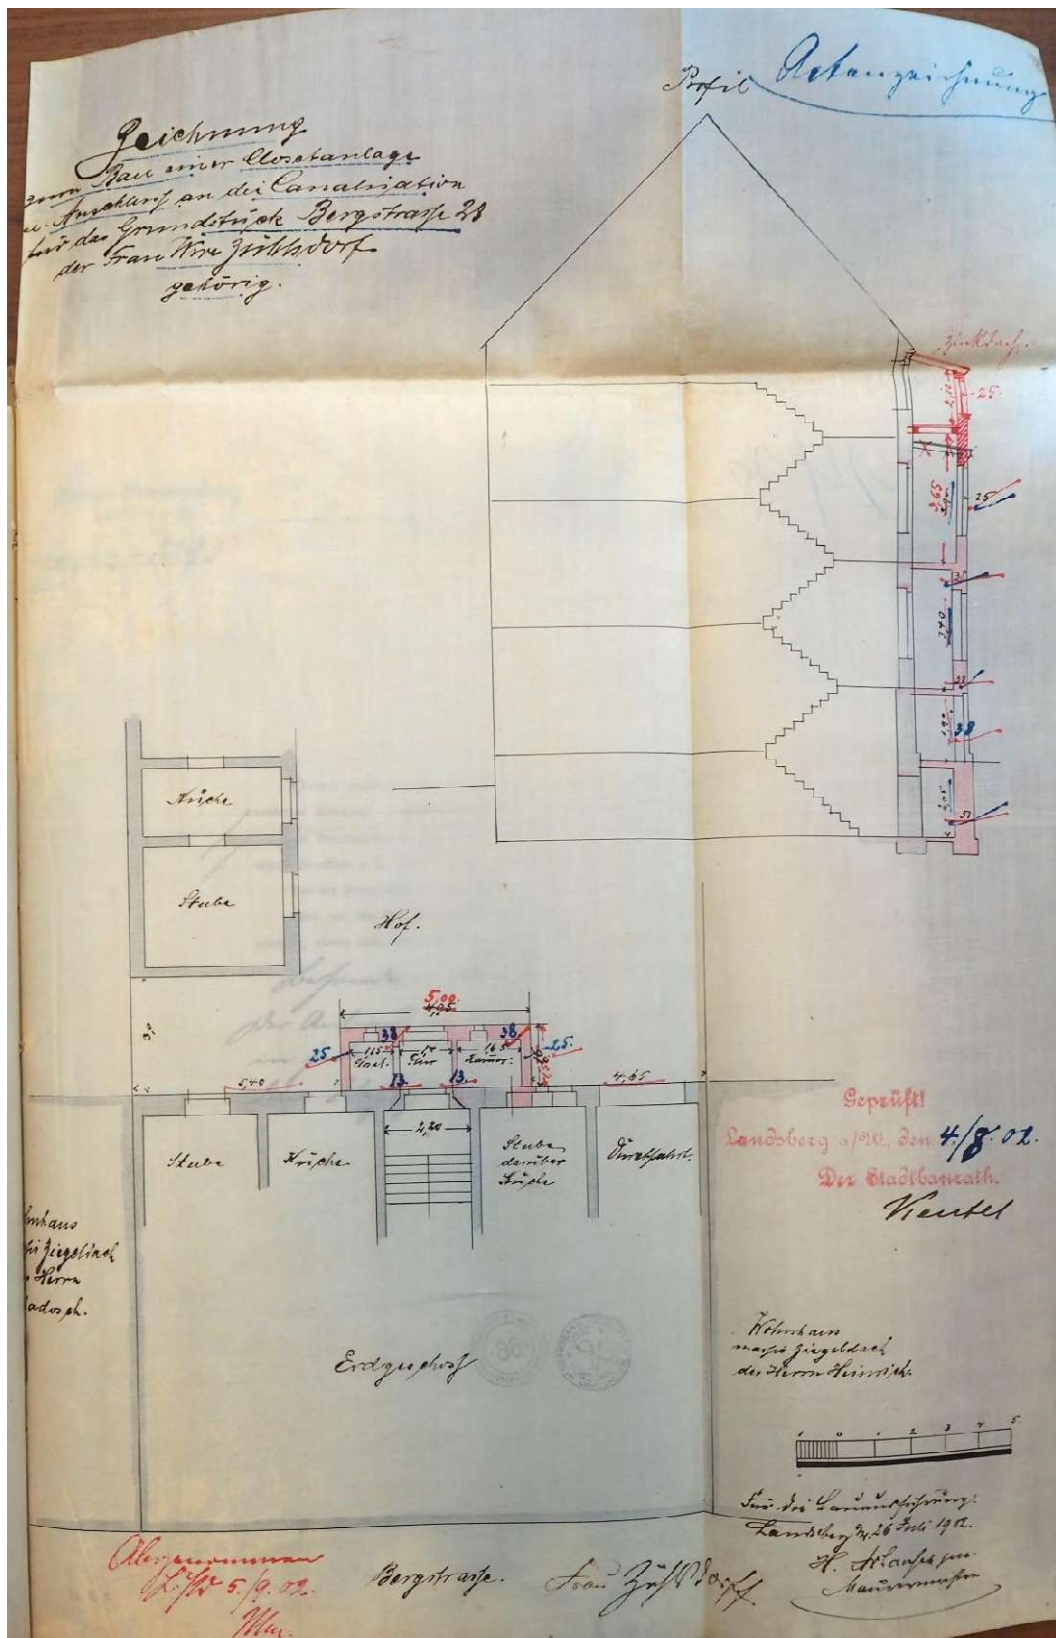 Profil
Aktenzeichnung
Zeichnung
zum Bau einer Closetanlage
u. Anschluss an die Canalisation
für das Grundstück Bergstrasse 28
der Frau Wwe Zühlsdorf
gehörig.
Zinkdach.
25.
2,65
25
38
2,40
38
1,90
38
2,05
51
Küche
Stube
Hof.
5,00
4,95
38
38
25
1,15
Closet.
Flur
1,65
Kamer.
25
13
13
5,40
4,65
2,20
Stube
Küche
Stube
darüber
Küche
Durchfahrt.
Geprüft!
Landsberg a/W., den 4./8. 02.
Der Stadtbaurath.
Ziegeldach
Herrn
Wohnhaus
massiv Ziegeldach
des Herrn Heinrich.
Erdgeschoss
1 0 1 2 3 4 5
Für die Bauausführung.
Landsberg a/W. 26 Juli 1902.
H.
Maurermeister
Abgenommen
5./9. 02.
Bergstrasse.
Frau Zühlsdorff